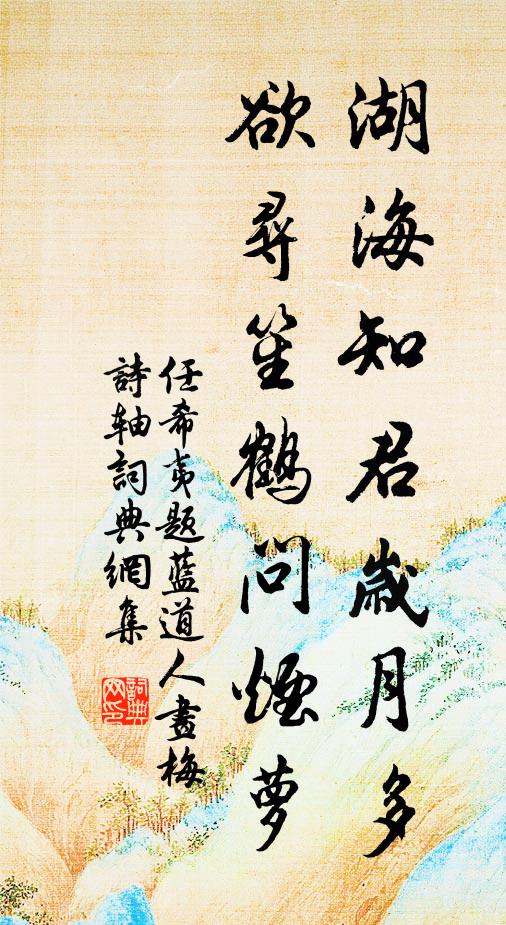 湖海知君歲月多
欲尋笙鶴問煙蘿
任希夷題藍道人畫梅
詩軸詞典網集
詞典網印